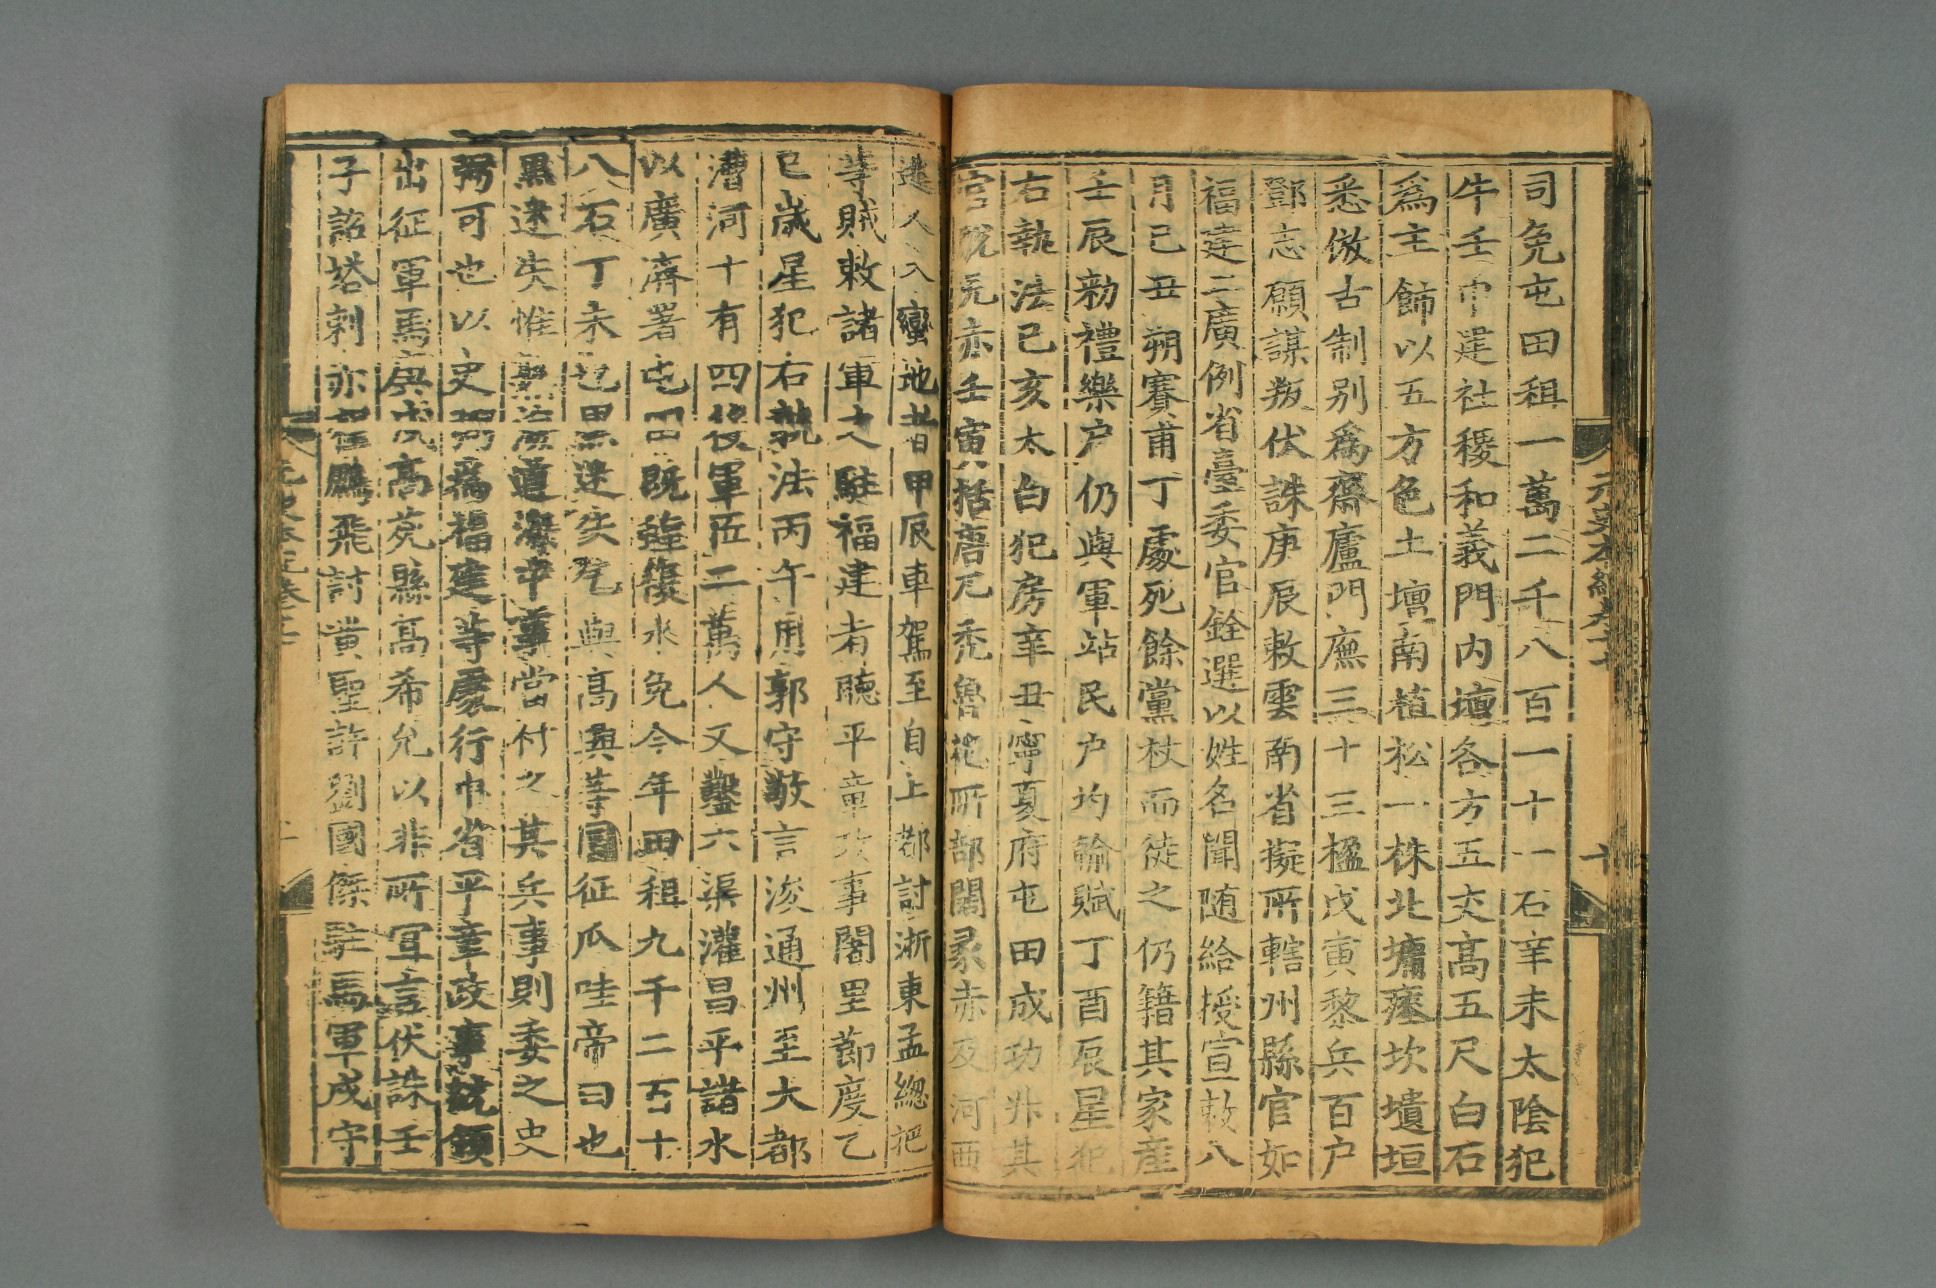 司免屯田租一萬二千八百一十一石辛未太陰犯
牛壬申建社稷和義門内壇各方五丈高五尺白石
爲主飾以五方色土壇南植松一株北墉瘞坎壝垣
悉倣古制别爲齋廬門廡三十三楹戊寅黎兵百户
鄧志願謀叛伏誅庚辰敕雲南省擬所轄州縣官如
福建二廣例省臺委官銓選以姓名聞随給授宣敕八
月己丑朔賽甫丁處死餘黨杖而徒之仍籍其家産
壬辰勑禮樂户仍與軍站民户均輸賦丁酉辰星犯
右執法己亥太白犯房辛丑寧夏府屯田成功升其
官脱兀赤壬寅括唐兀秃魯花所部闊彖赤及河西
逃人入蠻地者甲辰車駕至自上都討浙東孟總把
等賊敕諸軍之駐福建者聽平章政事闍里節度乙
巳歲星犯右執法丙午用郭守敬言浚通州至大都
漕河十有四役軍匠二萬人又鑿六渠灌昌平諸水
以廣濟署屯田既蝗復水免今年田租九千二百十
八石丁未也黑迷失乞與高興等同征瓜哇帝曰也
黑迷失惟熟海道海中事當付之其兵事則委之史
弼可也以史弼爲福建等處行中書省平章政事統領
出征軍馬庚戌高苑縣高希允以非所宜言伏誅壬
子詔塔剌赤程鵬飛討黄聖許劉國傑駐馬軍戍守
元史本紀卷十七
十